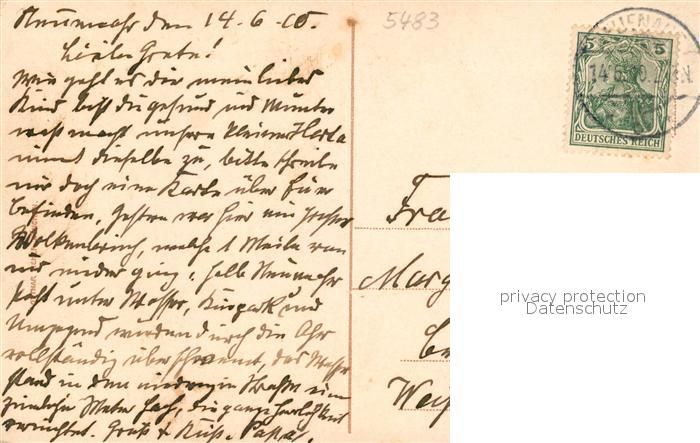 Neuenahr den 14.6.10.
5483
Liebe Grete!
Wie geht es dir mein liebes
Kind bist du gesund und munter
was macht unsere kleine Herta
nimmt dieselbe zu, bitte schreibe
mir doch eine Karte über Euer
befinden. Gestern war hier ein grosser
Wolkenbruch, welche 1 Meile von
uns nieder ging, halb Neuenahr
steht unter Wasser, Kurpark und
Umgegend wurden durch die Ahr
vollständig überschwemmt, das Wasser
stand in den niedrigen Strassen einen
ziemlichen Meter hoch, die ganze Herrlichkeit
vernichtet. Gruß & Kuß. Papa.
5 5
DEUTSCHES REICH
14.6.10.
Fra
Marg
Wei
privacy protection
Datenschutz